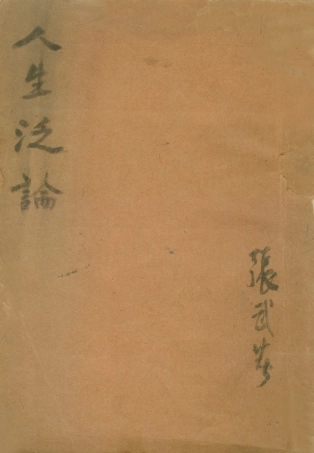 人生泛論
張武